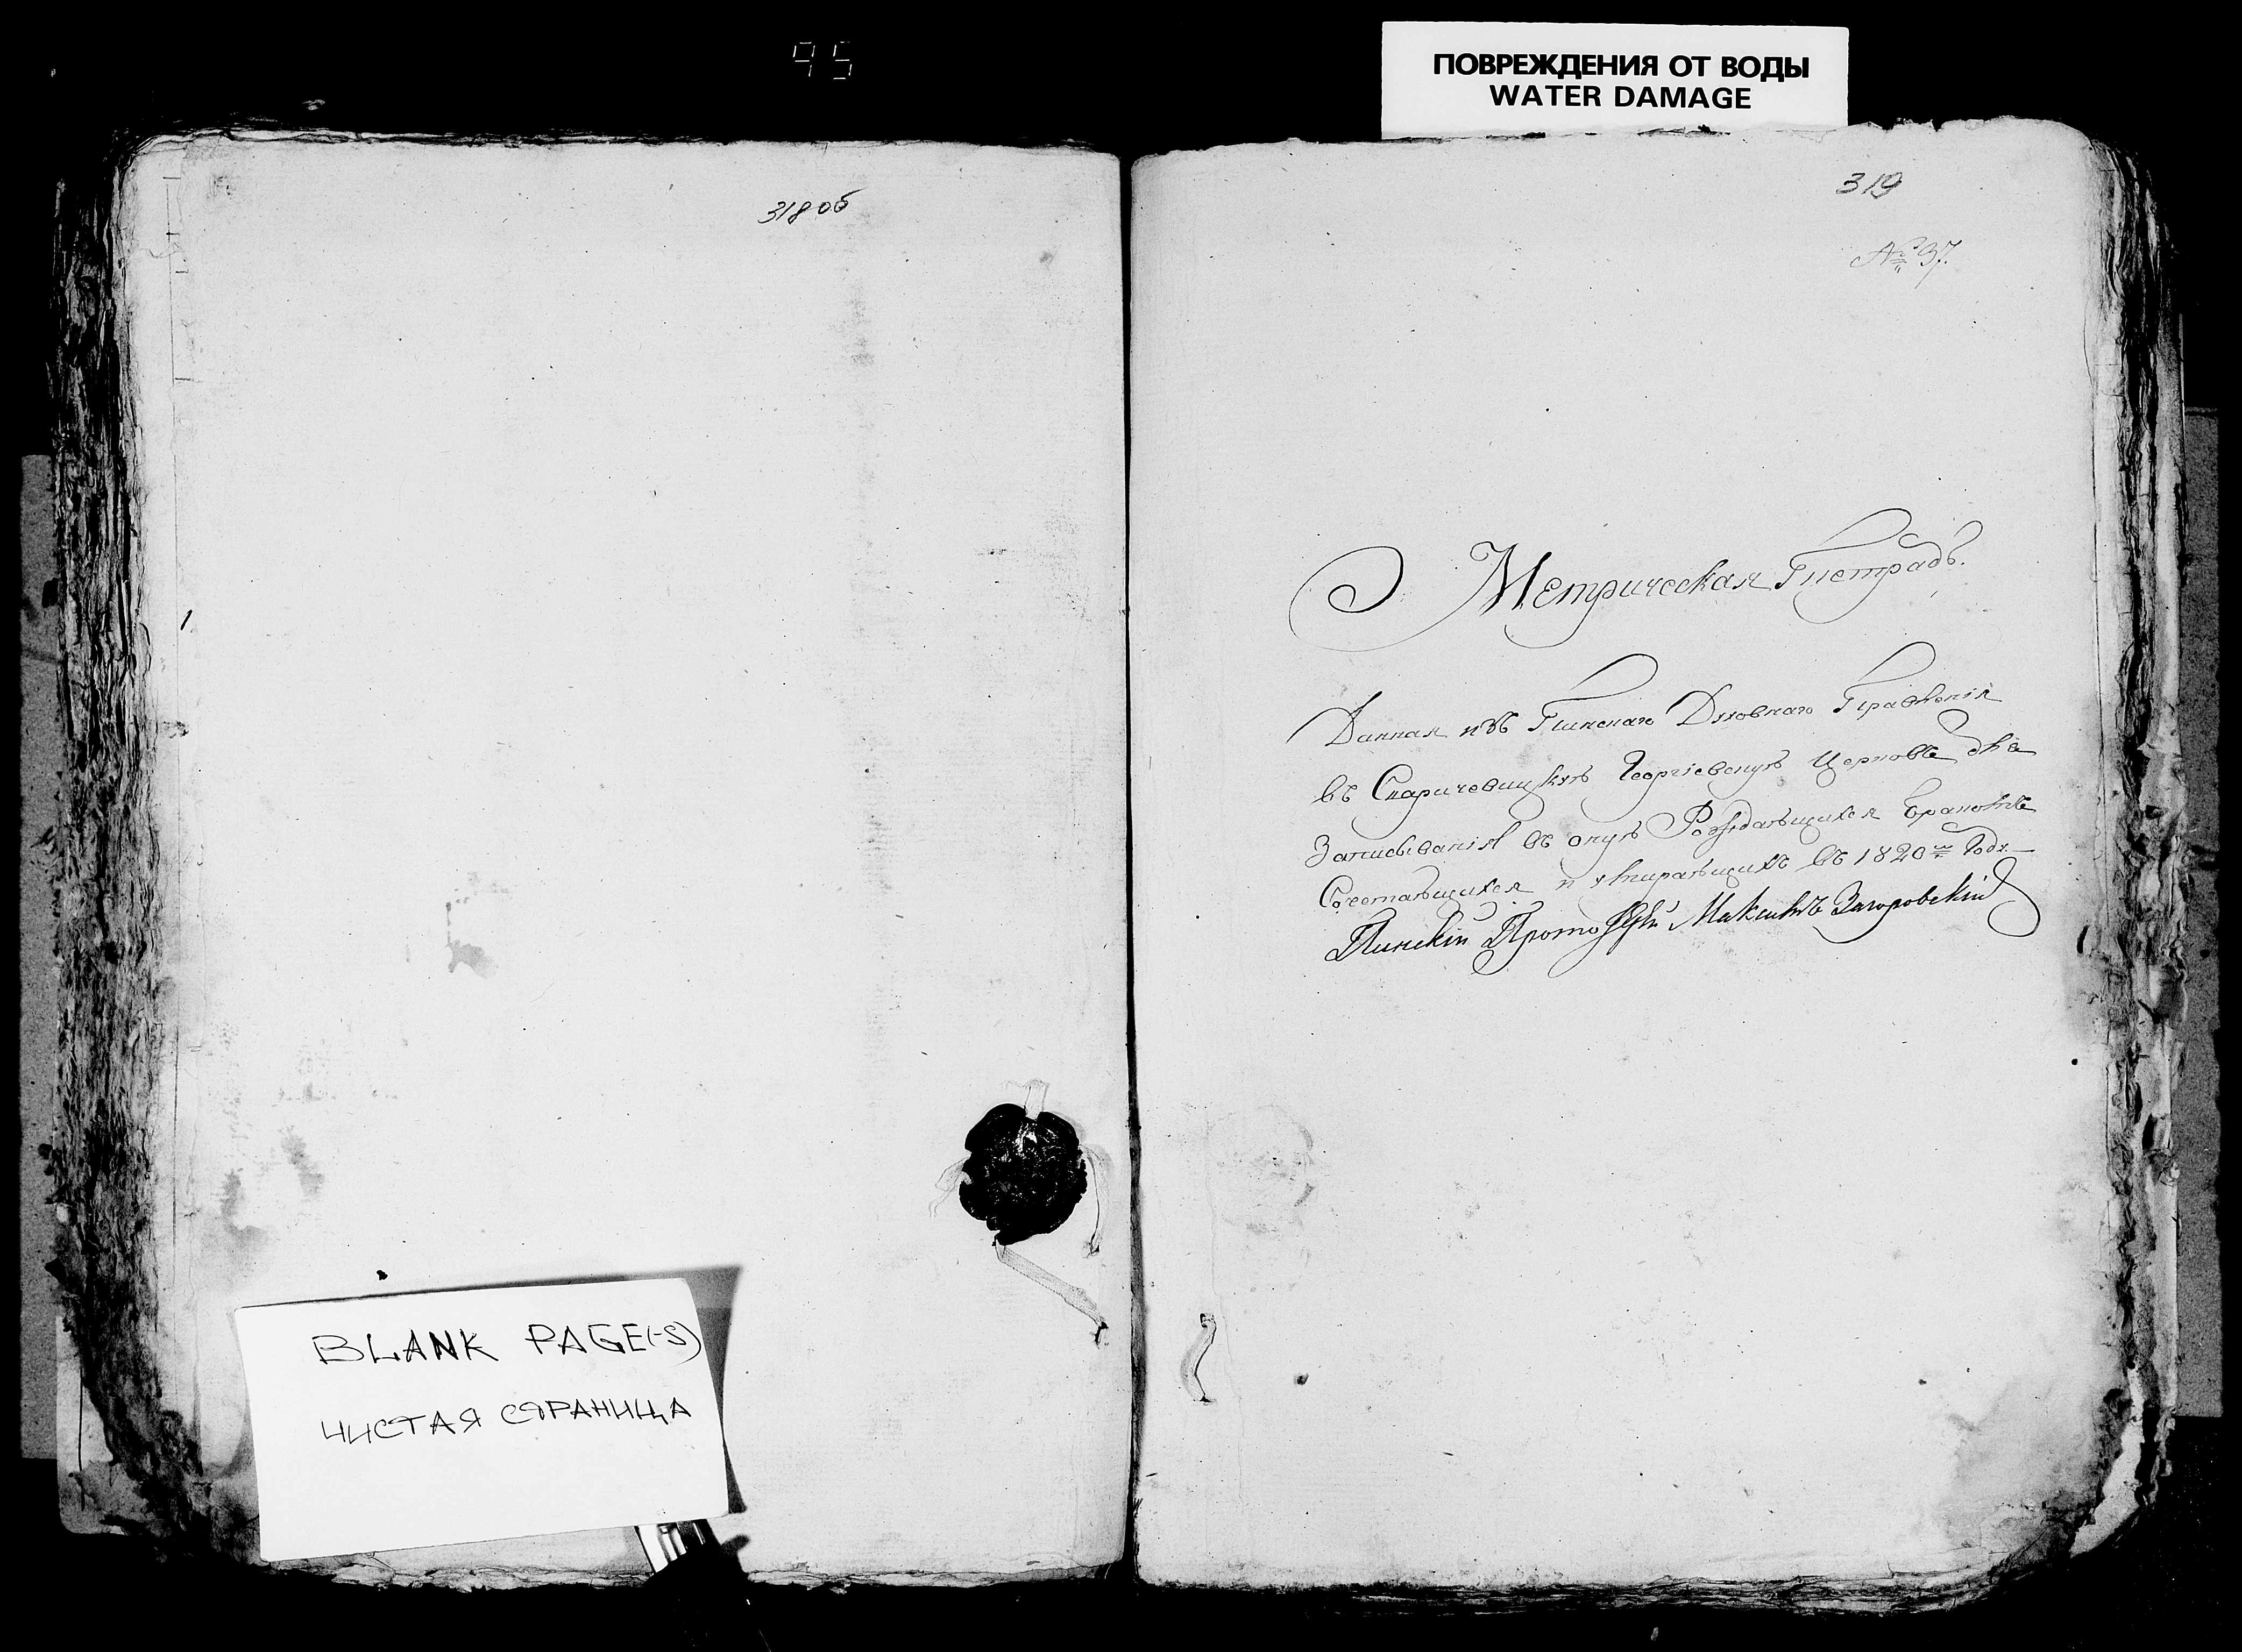 95
ПОВРЕЖДЕНИЯ ОТ ВОДЫ
WATER DAMAGE
318 об
319
№ 37.
Метрическая Тетрадь.
Данная изъ Пинскаго Духовнаго Правленія
въ Старичевицкую Георгіевскую Церковь для
Записыванія въ оную Рождающихся Бракомъ
Сочетающихся и умирающихъ въ 1820м Году
Пинскій Протоіерей Максимъ Загоровскій
BLANK PAGE(-S)
ЧИСТАЯ СТРАНИЦА